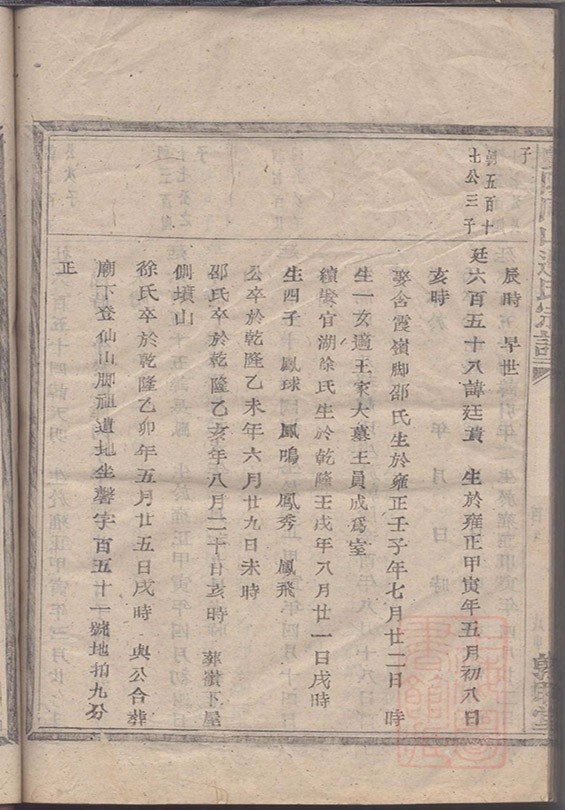 子
朝五百十
七公三子
辰時 早世
廷六百五十八諱廷貴 生於雍正甲寅年五月初八日
亥時
娶舍霞嶺脚邵氏生於雍正壬子年七月廿二日 時
生一女適王家大墓王員成爲室
續娶官湖徐氏生於乾隆壬戌年八月廿一日戌時
生四子 鳳球 鳳鳴 鳳秀 鳳飛
公卒於乾隆乙未年六月廿九日未時
邵氏卒於乾隆乙亥年八月二十日亥時 葬嶺下屋
側墳山
徐氏卒於乾隆乙卯年五月廿五日戌時 與公合葬
廟下登仙山脚祖遺地坐馨字百五十一號地拍九分
正